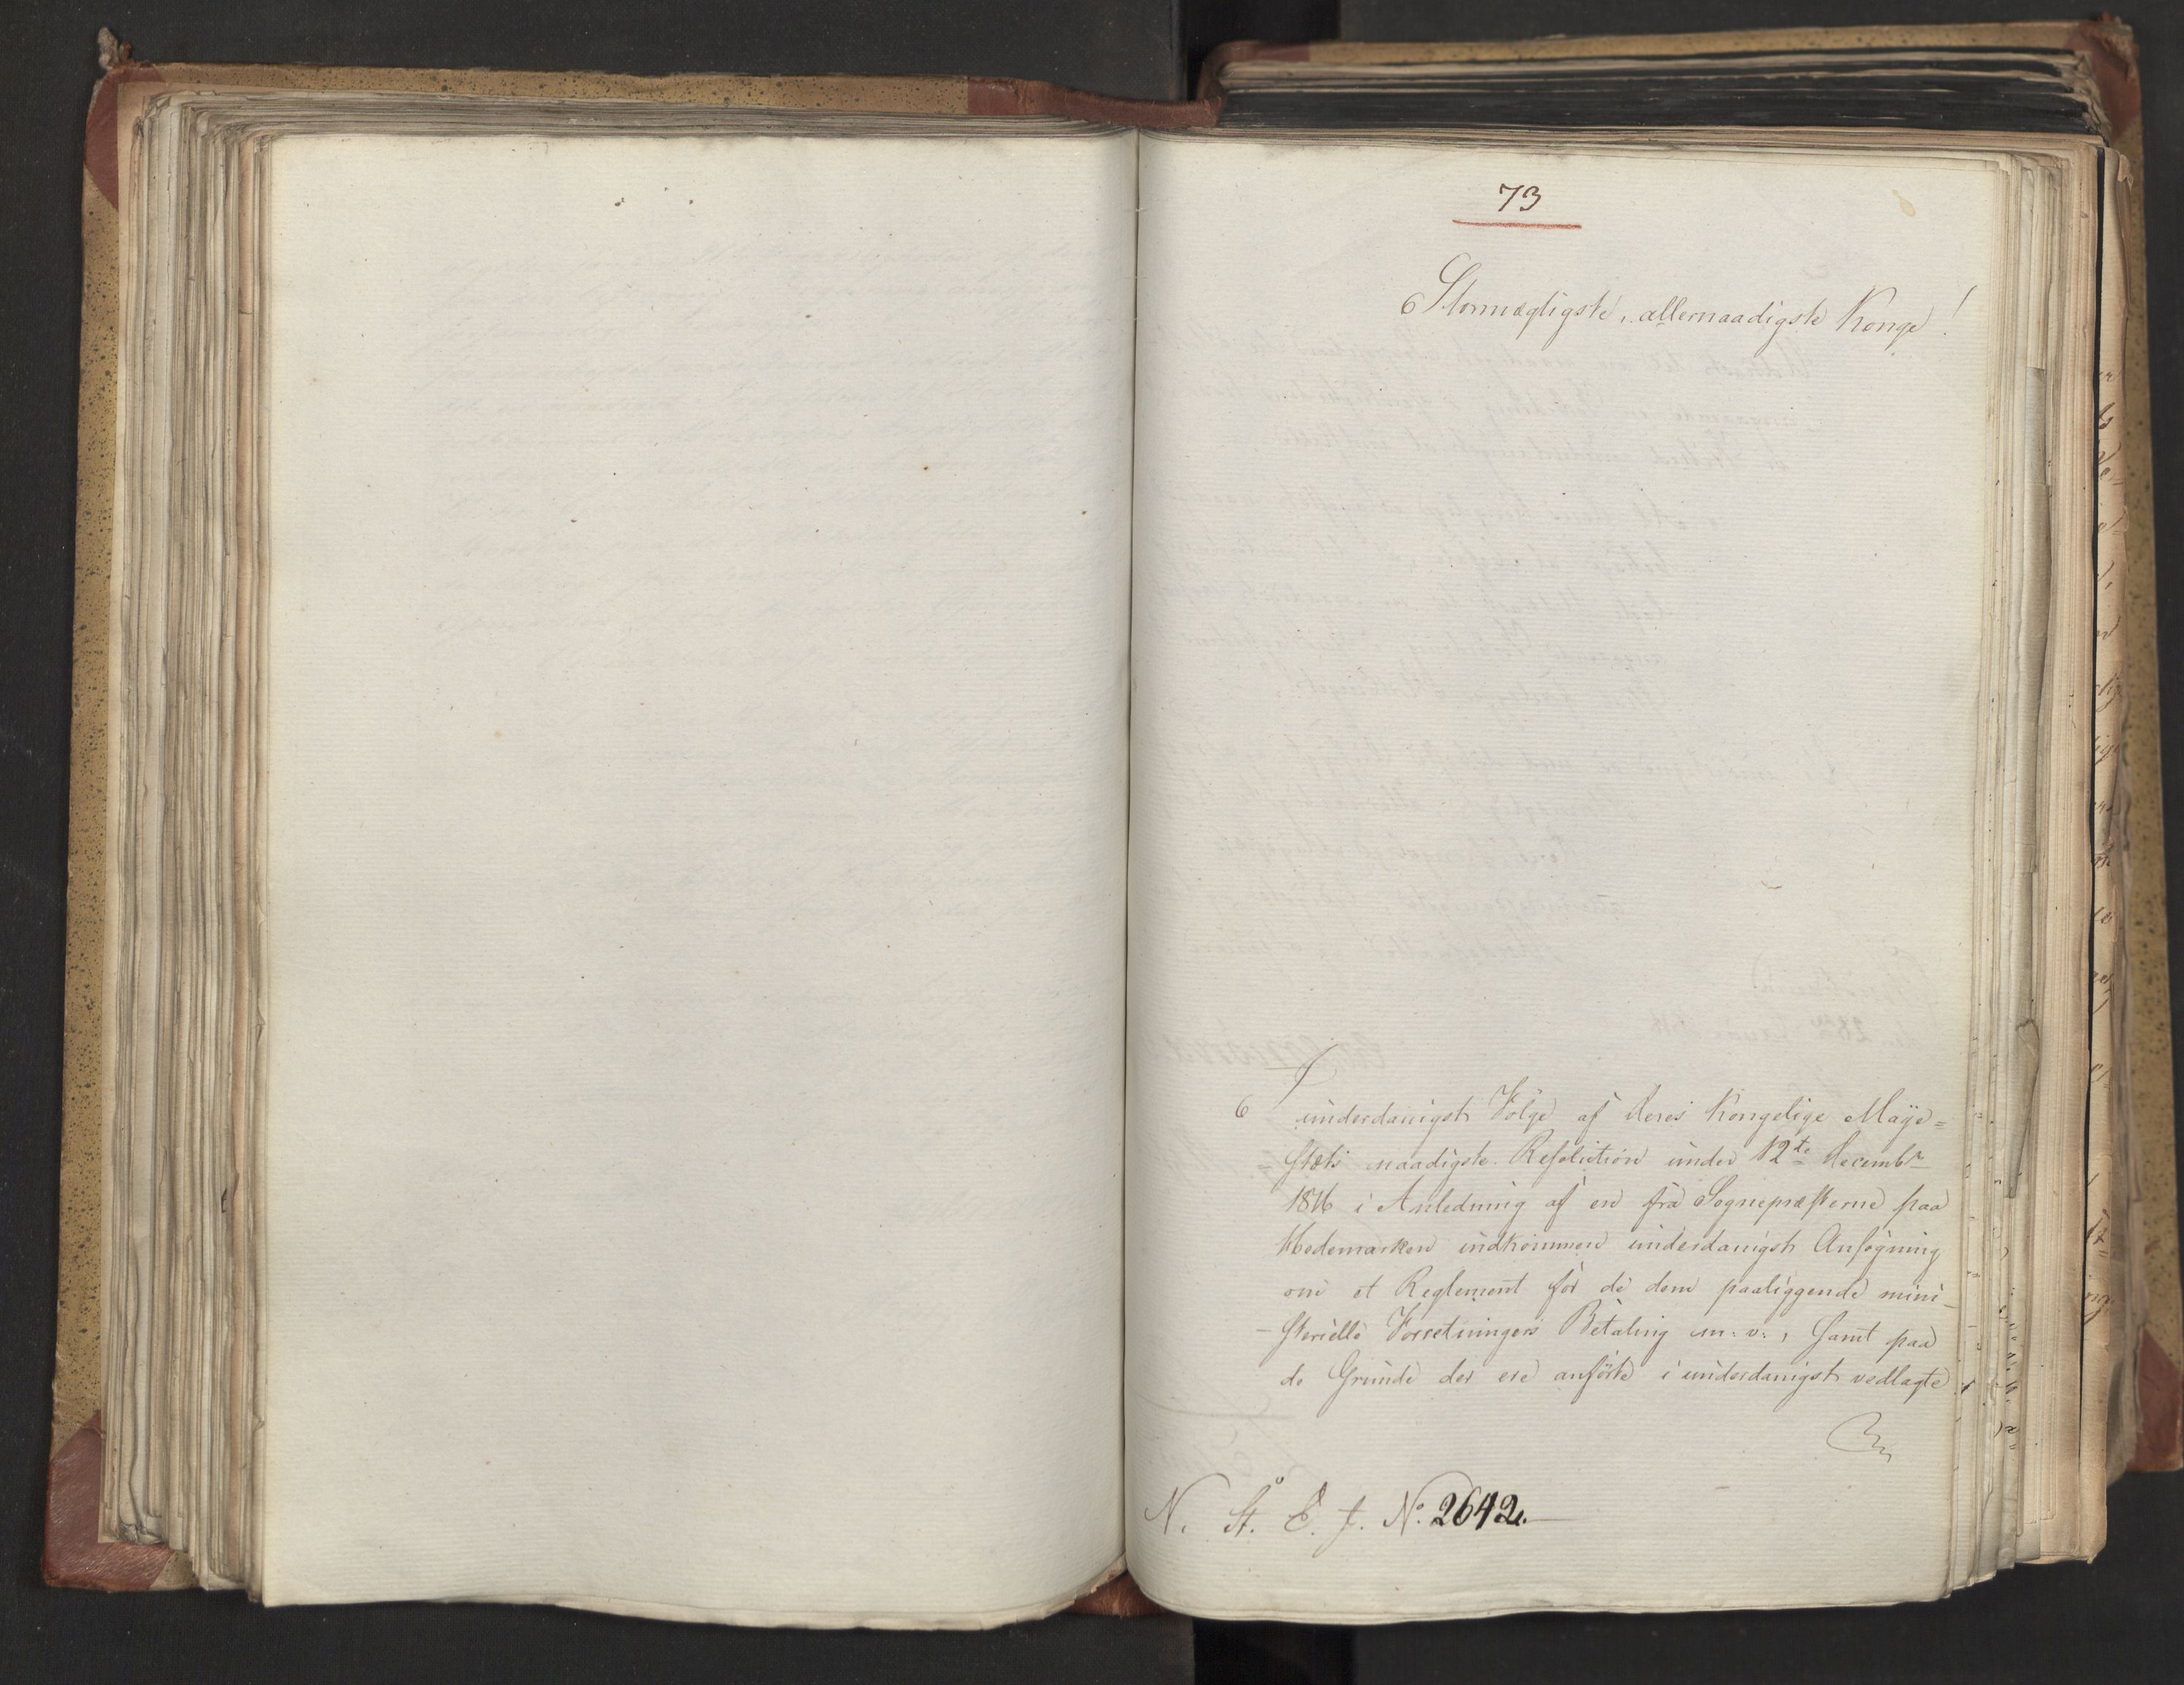 73
Stormægtigste, allernaadigste Konge!
I
underdanigst Følge af Deres Kongelige Maye=
stæts naadigste Resolution under 12te Decembr
1816 i Anledning af en fra Sognepræsterne paa
Hedemarken indkommen underdanigst Ansøgning
om et Reglement for de dem paaliggende mini-
-sterielle Forretningers Betaling m: v:, samt paa
de Grunde der ere anførte i underdanigst vedlagte
N. St. E. f. No. 2642.